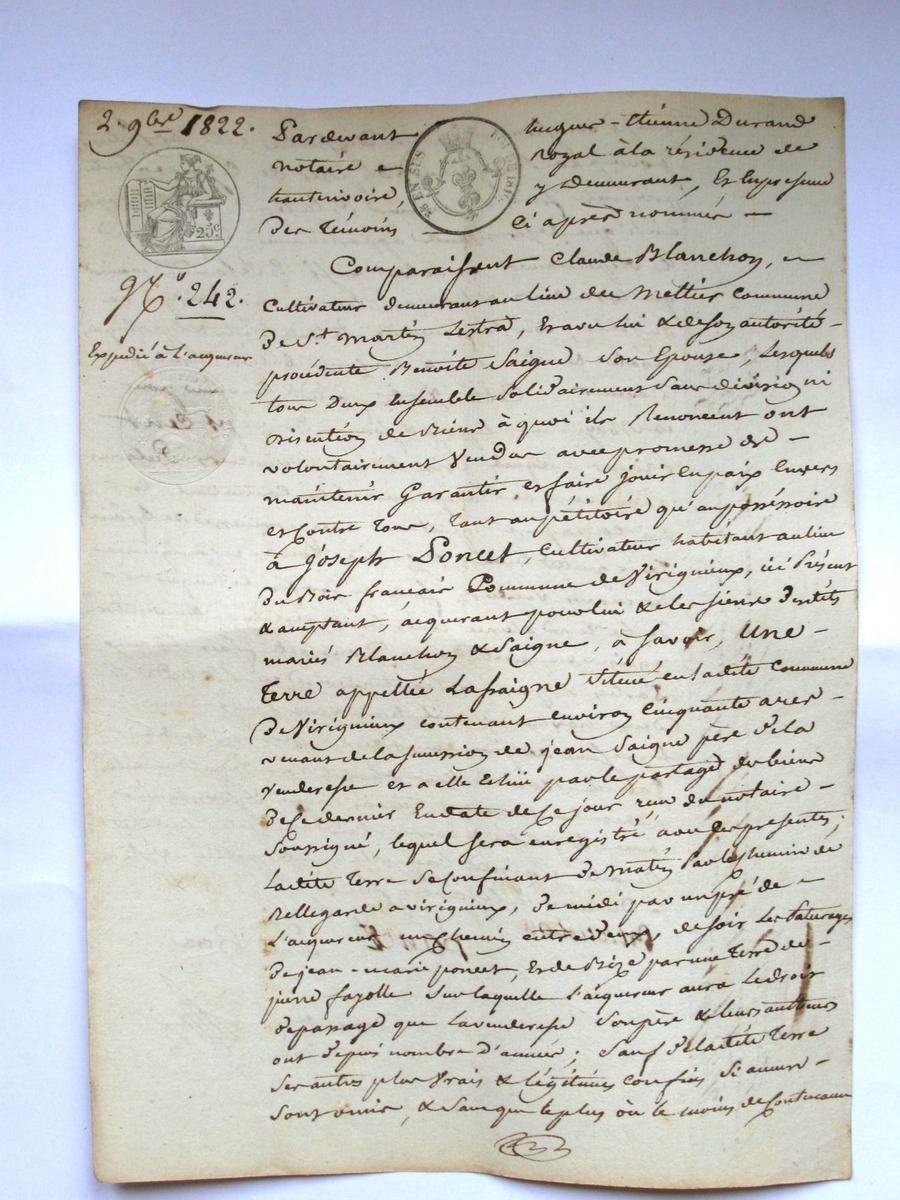 2. 9bre 1822.
Pardevant Etienne Durand
notaire royal à la résidence de
hauterivoire, y Demeurant, Et En presence
Des Témoins Ci après nommés —
25c
No. 242.
Expedié à l'acquereur
Comparaissent Claude Blanchon,
Cultivateur demeurant au lieu du Mettier Commune
De St. Martin Lestra, Et avec lui & de son autorité
procédente Benoite Saigne Son Epouse, Lesquels
tous Deux Ensemble Solidairement Sans division ni
discution de Biens à quoi ils Renoncent ont
volontairement Vendu avec promesse de
maintenir Garantir et faire jouir En paix Envers
et Contre Tous, Tant au pétitoire qu'au possessoire
à Joseph Poncet, Cultivateur habitant au lieu
Du Bois français Commune de Virignieux, ici Présent
& acceptant, acquerant pour lui & les siens Desdits
mariés Blanchon & Saigne, à Savoir, Une
Terre appellée Lassaigne Située en Ladite Commune
De Virignieux contenant environ Cinquante ares
venant de la succession de jean Saigne père de la
venderesse et a elle Echüe par le partage des biens
De Ce dernier En date de Ce jour reçu du notaire
Soussigné, lequel sera enregistré avec les présentes;
Ladite Terre Se Confinant De matin Par le chemin de
Bellegarde a virignieux, De midi par un pré de
L'acquereur un Chemin entre deux, de soir Les Paturages
De jean-marie poncet, Et de Bize par une Terre de
pierre fayolle Sur laquelle L'acquereur aura Le droit
De passage que La venderesse Son père & leurs auteurs
ont Depuis nombre D'année; Sauf De ladite Terre
Ses autres plus Vrais & légitimes confins Si aucuns
Sont omis, & Sans que le plus ou le moins de Contenance